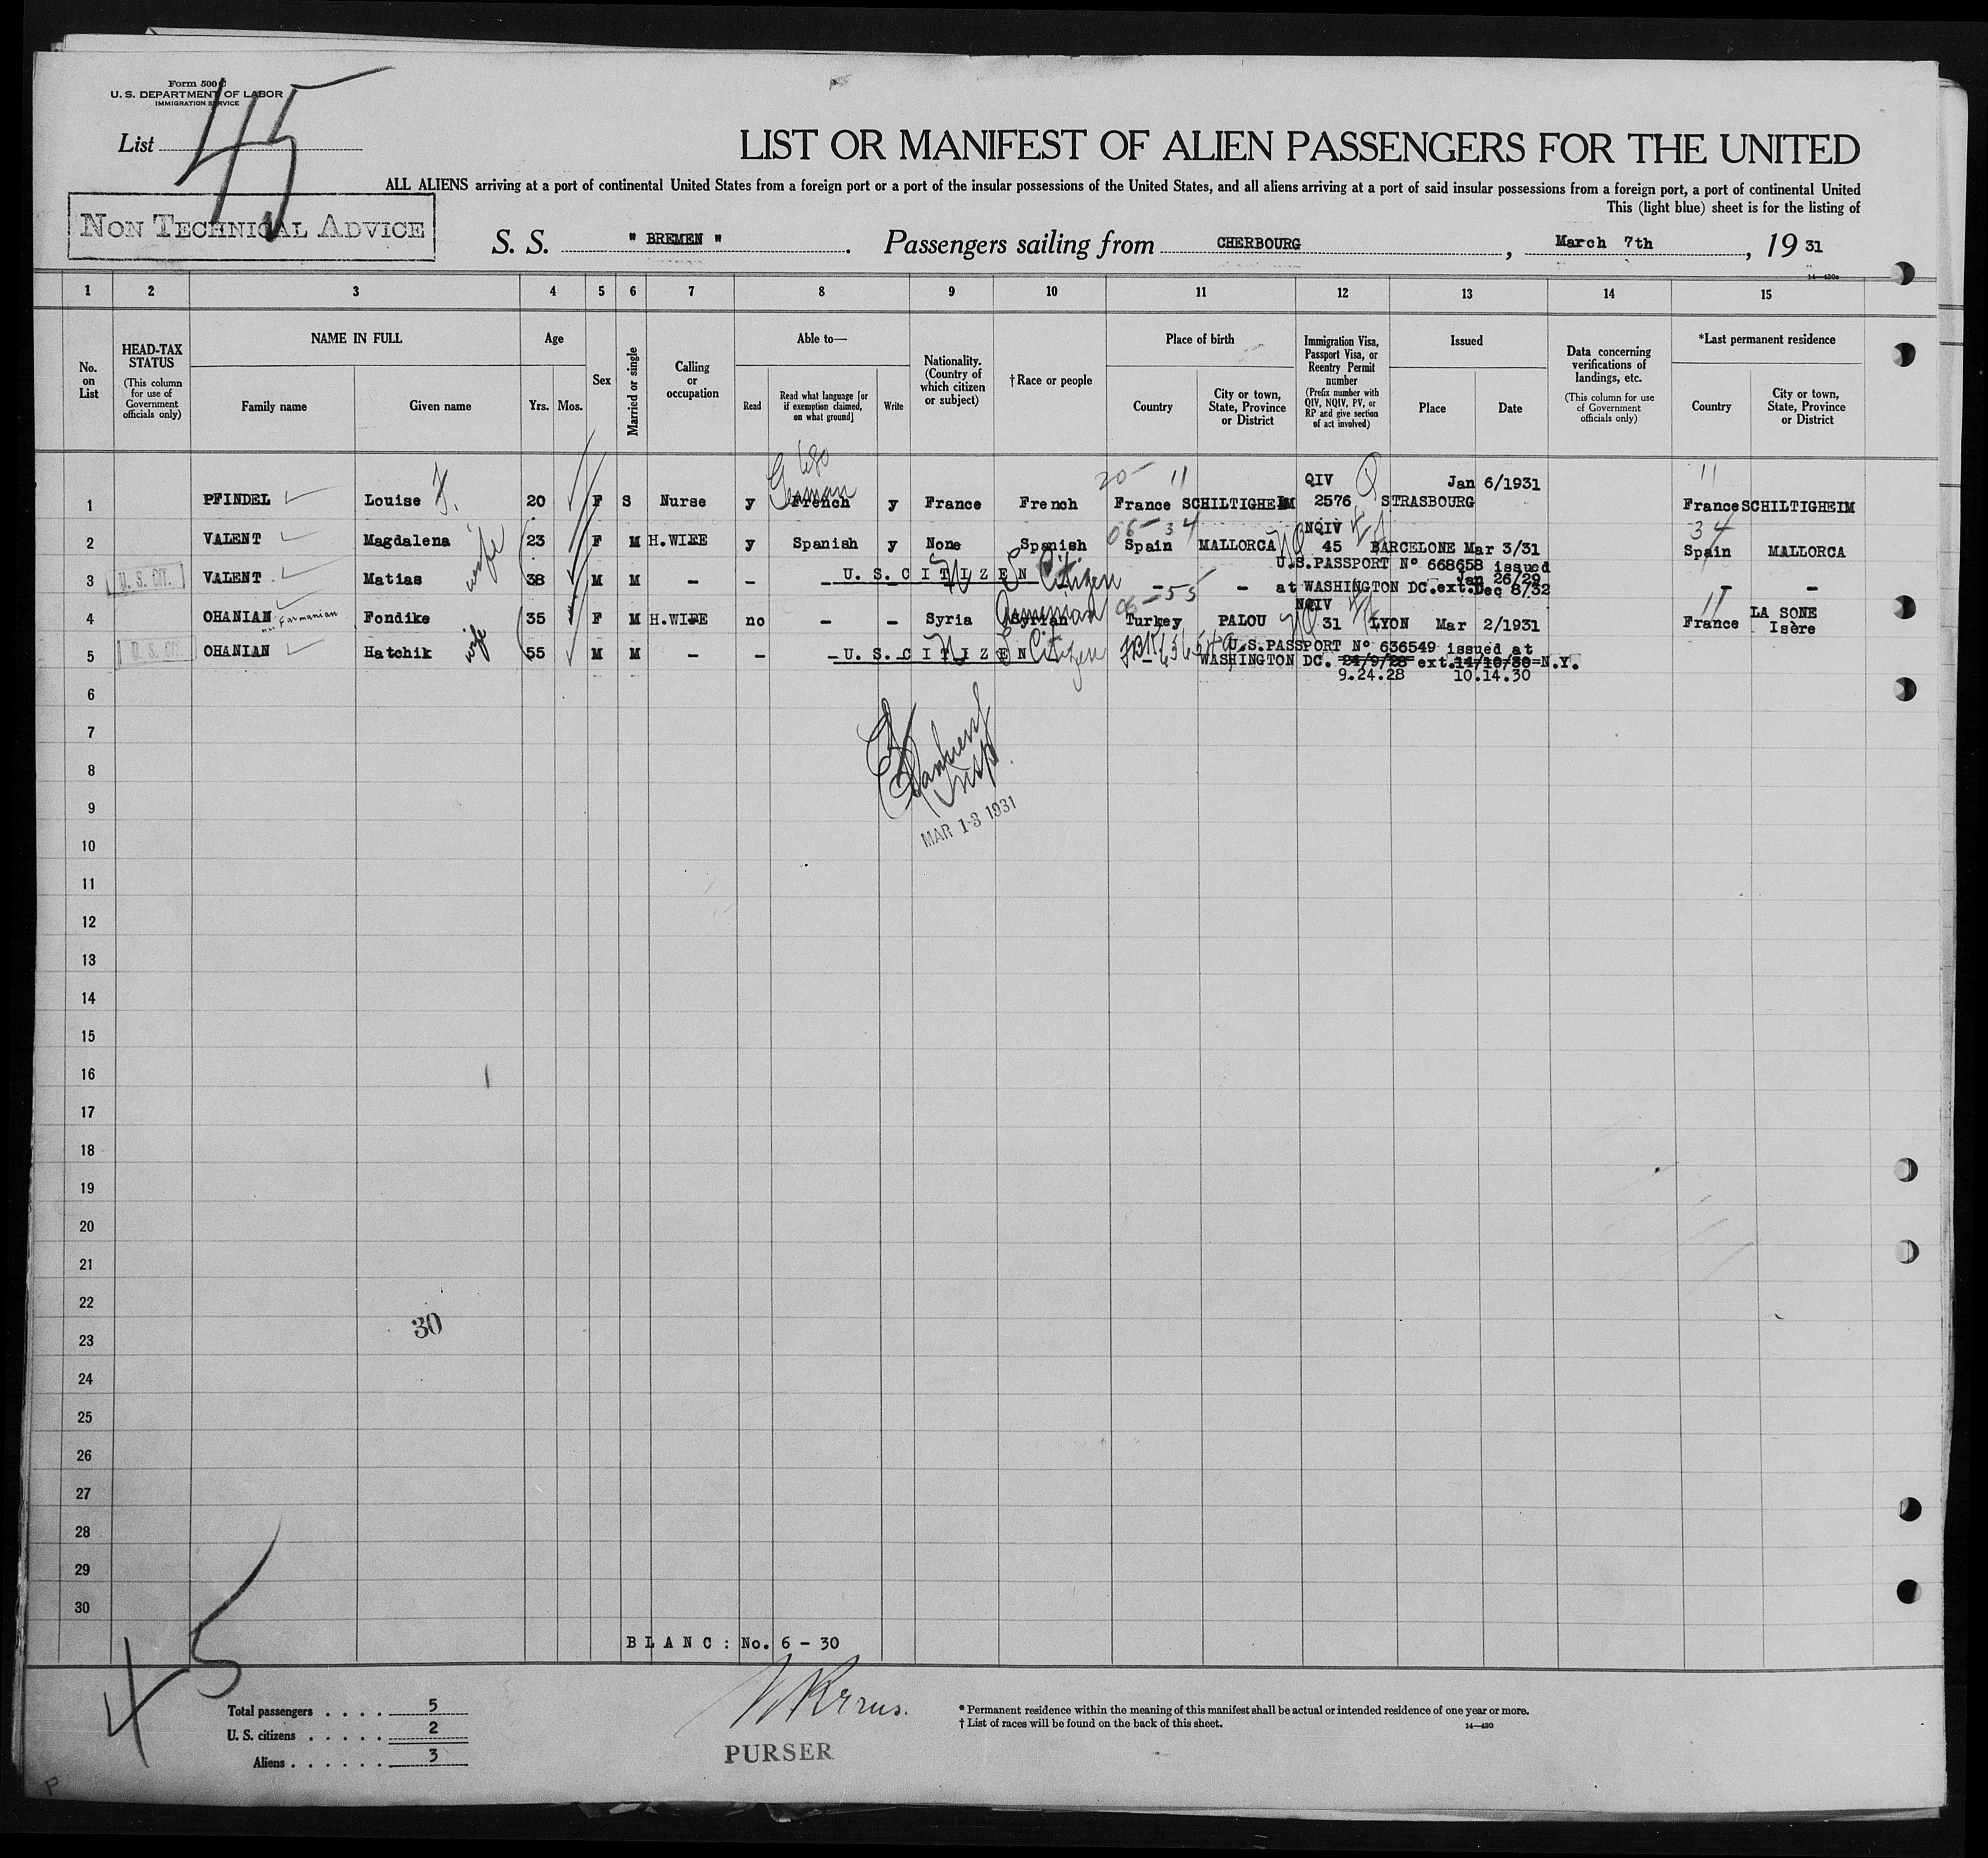 Form 500
U. S. DEPARTMENT OF LABOR
IMMIGRATION SERVICE
List 45
LIST OR MANIFEST OF ALIEN PASSENGERS FOR THE UNITED
ALL ALIENS arriving at a port of continental United States from a foreign port or a port of the insular possessions of the United States, and all aliens arriving at a port of said insular possessions from a foreign port, a port of continental United
This (light blue) sheet is for the listing of
NON TECHNICAL ADVICE
S. S. " BREMEN ". Passengers sailing from CHERBOURG, March 7th, 19 31
1 2 3 4 5 6 7 8 9 10 11 12 13 14 15
No. on List
HEAD-TAX STATUS (This column for use of Government officials only)
NAME IN FULL
Family name Given name
Age
Yrs. Mos.
Sex
Married or single
Calling or occupation
Able to—
Read
Read what language [or if exemption claimed, on what ground]
Write
Nationality. (Country of which citizen or subject)
†Race or people
Place of birth
Country
City or town, State, Province or District
Immigration Visa, Passport Visa, or Reentry Permit number (Prefix number with QIV, NQIV, PV, or RP and give section of act involved)
Issued
Place Date
Data concerning verifications of landings, etc. (This column for use of Government officials only)
*Last permanent residence
Country
City or town, State, Province or District
German
20- 11 QIV Q Jan 6/1931 11
1 PFINDEL Louise F. 20 F S Nurse y French y France French France SCHILTIGHEIM 2576 STRASBOURG France SCHILTIGHEIM
06-34 NQIV 34
2 VALENT Magdalena wife 23 F M H.WIFE y Spanish y None Spanish Spain MALLORCA 45 BARCELONE Mar 3/31 Spain MALLORCA
U.S.PASSPORT No 668658 issued
Jan 26/29
3 U. S. CIT. VALENT Matias 38 M M - - - U. S. C I T I Z E N U S Citizen - - at WASHINGTON DC.ext.Dec 8/32 - -
Armenian 06-55 NQIV 11
4 OHANIAN Farmanian Fondike wife 35 F M H.WIFE no - - Syria Syrian Turkey PALOU 31 LYON Mar 2/1931 France LA SONE Isère
U.S.PASSPORT No 636549 issued at
5 U. S. CIT. OHANIAN Hatchik 55 M M - - - U. S. C I T I Z E N U S Citizen - WASHINGTON DC. 24/9/28 ext.14/10/30=N.Y.
9.24.28 10.14.30
6
7
Insp.
8
9
MAR 13 1931
10
11
12
13
14
15
16
17
18
19
20
21
22
30
23
24
25
26
27
28
29
30
B L A N C : No. 6 - 30
45
Total passengers . . . . 5
U. S. citizens . . . . . 2
Aliens . . . . . . 3
PURSER
* Permanent residence within the meaning of this manifest shall be actual or intended residence of one year or more.
† List of races will be found on the back of this sheet.
14—430